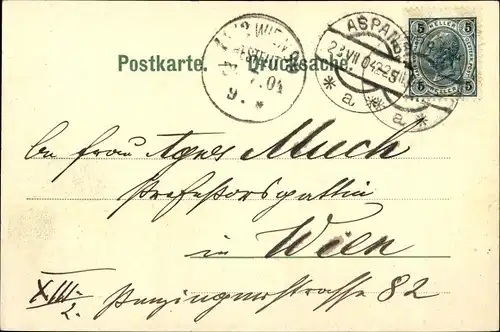 Postkarte. Drucksache.
WIEN
ASPANG
23 VII 04
* a *
* a *
04
9. *
5 HELLER 5
5 HELLER 5
An Frau Agnes Much
Professorsgattin
in Wien
XIII/2. Penzingerstrasse 82